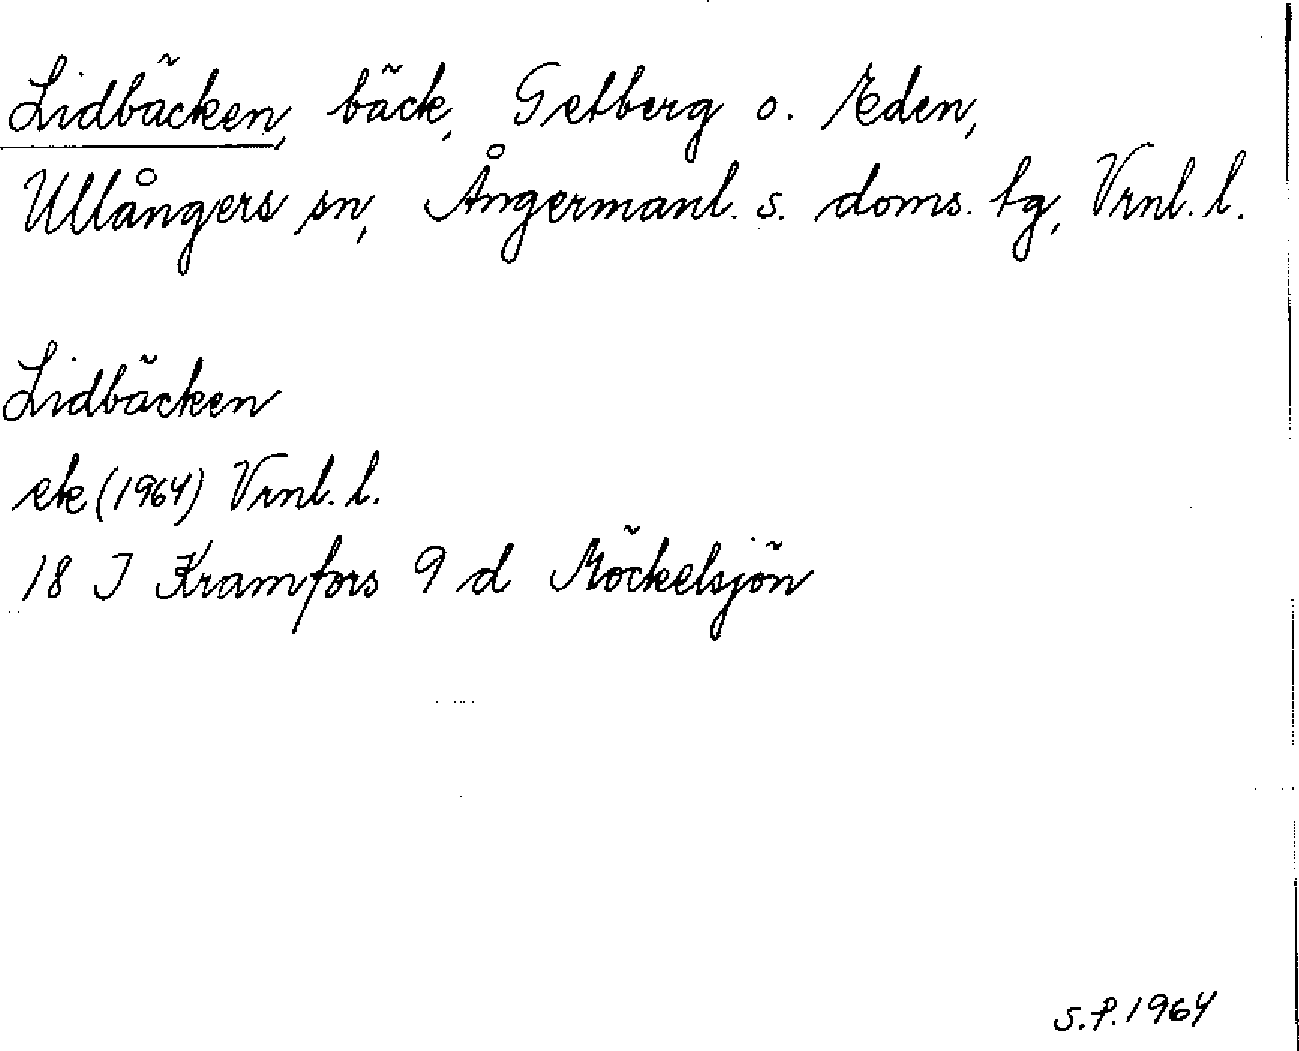 Lidbäcken, bäck, Getberg o. Eden,
Ullångers sn, Ångermanl. s. doms. tg, Vrnl. l.
Lidbäcken
ek (1964) Vrnl. l.
18 I Kramfors 9 d Möckelsjön
S.P. 1964